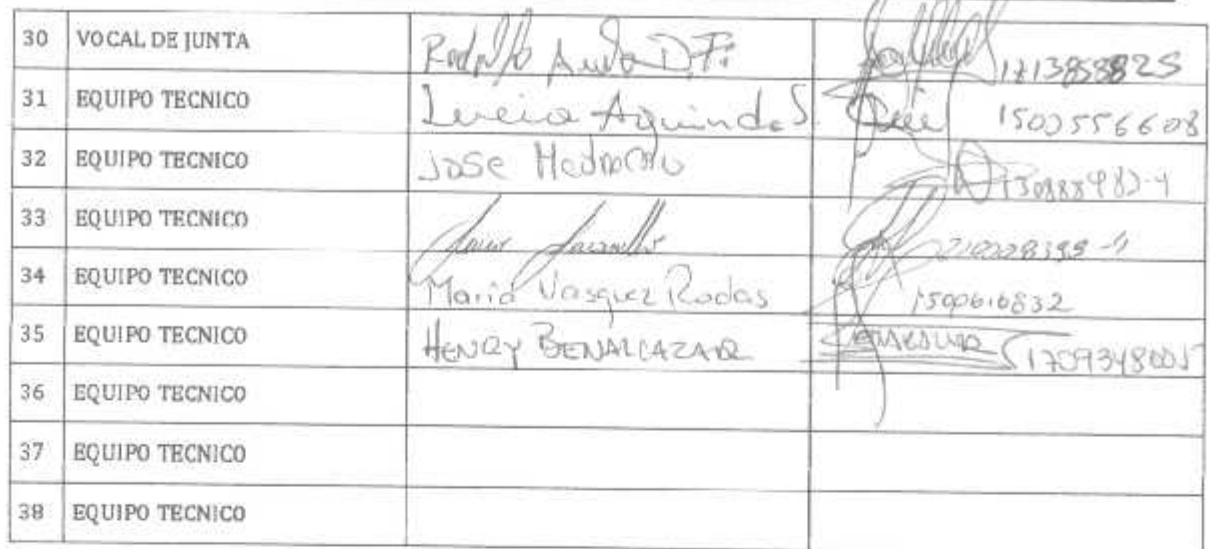 30 VOCAL DE JUNTA Rodolfo 1713858825
31 EQUIPO TECNICO Lucia Aguinda S. 1500556608
32 EQUIPO TECNICO Jose
33 EQUIPO TECNICO
34 EQUIPO TECNICO Maria Vasquez Rodas 1500616832
35 EQUIPO TECNICO HENRY BENALCAZAR 1709348005
36 EQUIPO TECNICO
37 EQUIPO TECNICO
38 EQUIPO TECNICO